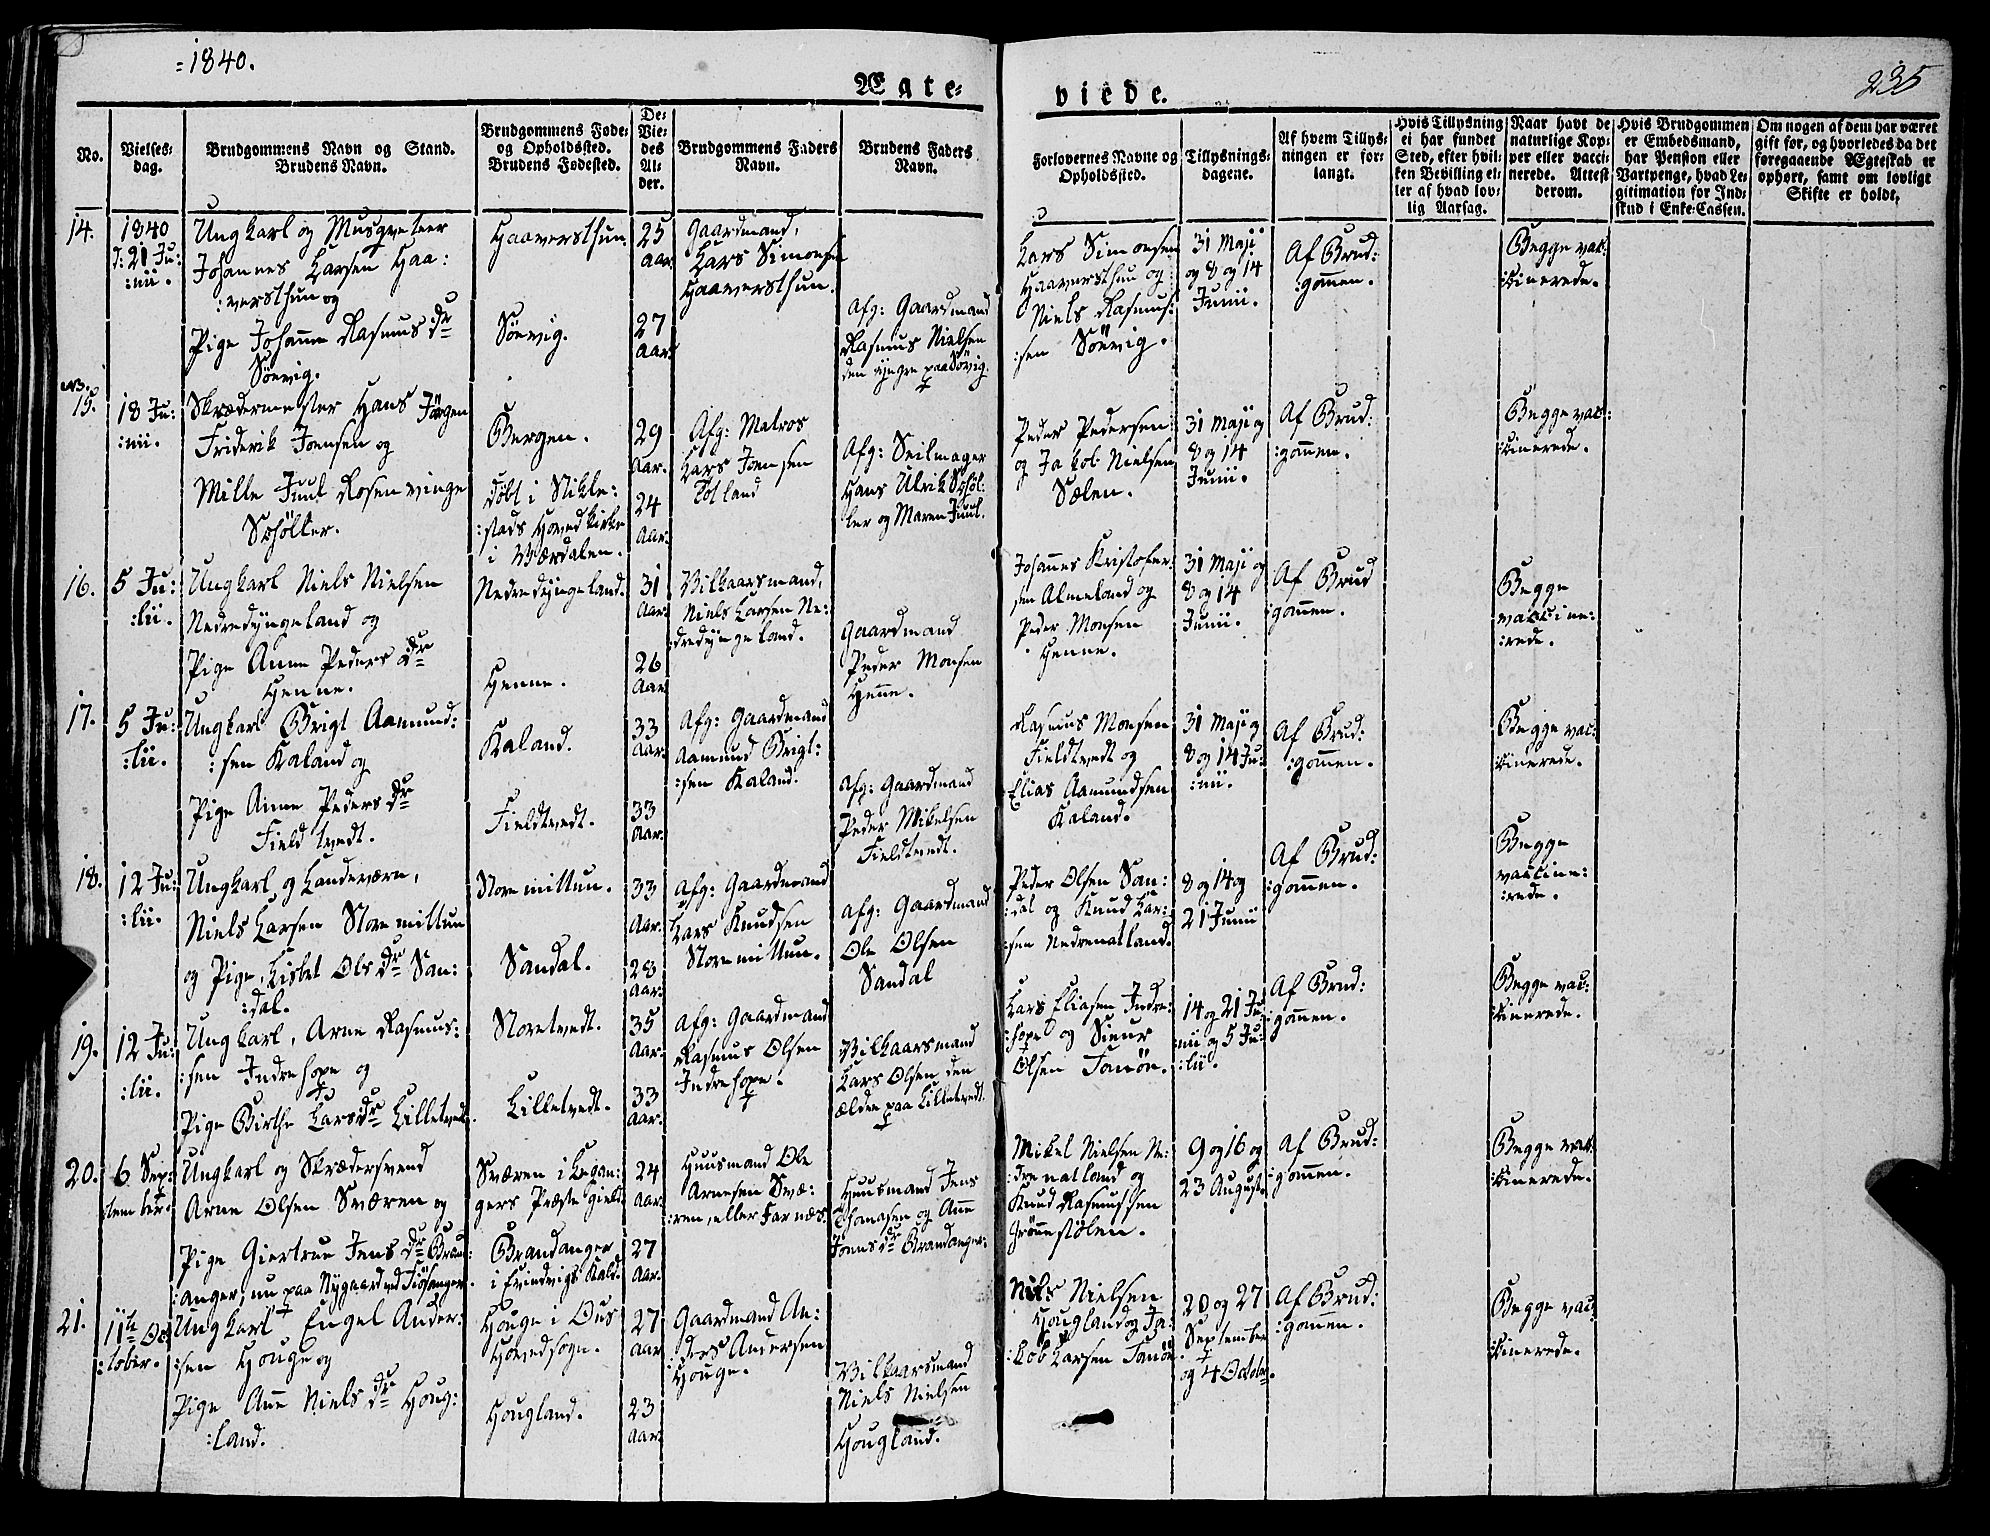 =1840.
Ægte=
viede.
235
No.
Vielses-
dag.
Brudgommens Navn og Stand.
Brudens Navn.
Brudgommens Føde-
og Opholdssted.
Brudens Fødested.
De-
Vie-
des
Al-
der.
Brudgommens Faders
Navn.
Brudens Faders
Navn.
Forlovernes Navne og
Opholdssted.
Tillysnings-
dagene.
Af hvem Tillys-
ningen er for-
langt.
Hvis Tillysning
ei har fundet
Sted, efter hvil-
ken Bevilling el-
ler af hvad lov-
lig Aarsag.
Naar havt de
naturlige Kop-
per eller vacci-
nerede. Attest
derom.
Hvis Brudgommen
er Embedsmand,
har Pension eller
Vartpenge, hvad Le-
gitimation for Ind-
skud i Enke-Cassen.
Om nogen af dem har været
gift før, og hvorledes da det
foregaaende Ægteskab er
ophørt, samt om lovligt
Skifte er holdt.
14.
1840
d: 21 Ju:
:nii.
Ungkarl og Musqveteer
Johannes Larsen Haa:
:versthun og
Pige Johanne Rasmus dr
Sørvig.
Haaversthun.
Sørvig.
25
Aar.
27
Aar.
Gaardmand,
Lars Simonsen
Haaversthun.
Afg: Gaardmand
Rasmus Nielsen
den yngre paa Sørvig.
Lars Simonsen
Haaversthun og
Niels Rasmus:
:sen Sørvig.
31 Maji
og 8 og 14
Junii.
Af Brud:
:gommen.
Begge vac:
:cinerede.
15.
18 Ju:
:nii.
Skrædermester Hans Jørgen
Friderik Joensen og
Mille Juul Rosenvinge
Schøller.
Bergen.
døbt i Stikle:
:stads Hovedkirke
i Værdalen.
29
Aar.
24
Aar.
Afg: Matros
Lars Joensen
Afg: Seilmager
Hans Ulrik Schøl:
ler og Maren Juul.
Peder Pedersen
og Jakob Nielsen
Sælen.
31 Maji og
8 og 14
Junii.
Af Brud:
:gommen.
Begge vac:
:cinerede.
16.
5 Ju:
:lii.
Ungkarl Niels Nielsen
Nedredyngeland og
Pige Anne Peders dr
Henne.
Nedredyngeland.
Henne.
31
Aar.
26
Aar.
Vilkaarsmand,
Niels Larsen Ne:
:dredyngeland.
Gaardmand
Peder Monsen
Henne.
Johannes Kristofer
sen Almeland og
Peder Monsen
Henne.
31 Maji og
8 og 14
Junii.
Af Brud
:gommen.
Begge
vaccine:
:rede.
17.
5 Ju:
:lii.
Ungkarl Brigt Aamund:
:sen Kaland og
Pige Anne Peders dr
Fieldtvedt.
Kaland.
Fieldtvedt.
33
Aar.
33
Aar.
Afg: Gaardmand
Aamund Brigt:
:sen Kaland.
Afg: Gaardmand
Peder Mikelsen
Fieldtvedt.
Rasmus Monsen
Fieldtvedt og
Elias Aamundsen
Kaland.
31 Maji og
8 og 14 Ju:
:nii.
Af Brud:
:gommen.
Begge vac:
:cinerede.
18.
12 Ju:
:lii.
Ungkarl og Landeværn,
Niels Larsen Storemittun
og Pige, Lisbet Ols dr San:
:dal.
Storemittun.
Sandal.
33
Aar.
28
Aar.
Afg: Gaardmand
Lars Knudsen
Storemittun.
Afg: Gaardmand
Ole Olsen
Sandal
Peder Olsen San:
:dal og Knud Lar:
:sen Nedrenatland.
8 og 14 og
21 Junii
Af Brud:
:gommen.
Begge
vaccine:
:rede.
19.
12 Ju:
:lii.
Ungkarl, Arne Rasmus:
:sen Indrehope og
Pige Birthe Lars dr Lilletvedt.
Storetvedt.
Lilletvedt.
35
Aar.
33
Aar.
Afg: Gaardmand
Rasmus Olsen
Indrehope.
Vilkaarsmand
Lars Olsen den
ældre paa Lilletvedt.
Lars Eliasen Indre:
:hope og Siur
Olsen Tanøn.
14 og 21 Ju:
:nii og 5 Ju:
:lii.
Af Brud:
:gommen.
Begge vac:
:cinerede.
20.
6 Sep:
:tember.
Ungkarl og Skrædersvend
Arne Olsen Sværen og
Pige Giertrue Jens dr Bran:
:anger, nu paa Nygaard ved Fiøsanger.
Sværen i Legan:
gers Præstegield
Brandanger
i Evindvigs Kald.
24
Aar.
27
Aar.
Huusmand Ole
Arnesen Svæ:
:ren, eller Farnæs.
Huusmand Jens
Thomasen og Anne
Joens dr Brandanger.
Mikel Nielsen Ne:
:drenatland og
Knud Rasmussen
Grønnestølen.
9 og 16 og
23 August.
Af Brud:
:gommen.
Begge vac:
:cinerede.
21.
11te Oc:
:tober.
Ungkarl Engel Ander:
:sen Houge og
Pige Ane Niels dr Houg:
:land.
Houge i Ous
Hovedsogn.
Hougland.
27
Aar
23
Aar
Gaardmand An:
:ders Andersen
Houge.
Vilkaarsmand
Niels Nielsen
Hougland.
Niels Nielsen
Hougland og Ja:
:kob Larsen Tanøn.
20 og 27
September
og 4 October.
Af Brud:
:gommen.
Begge vac:
:cinerede.